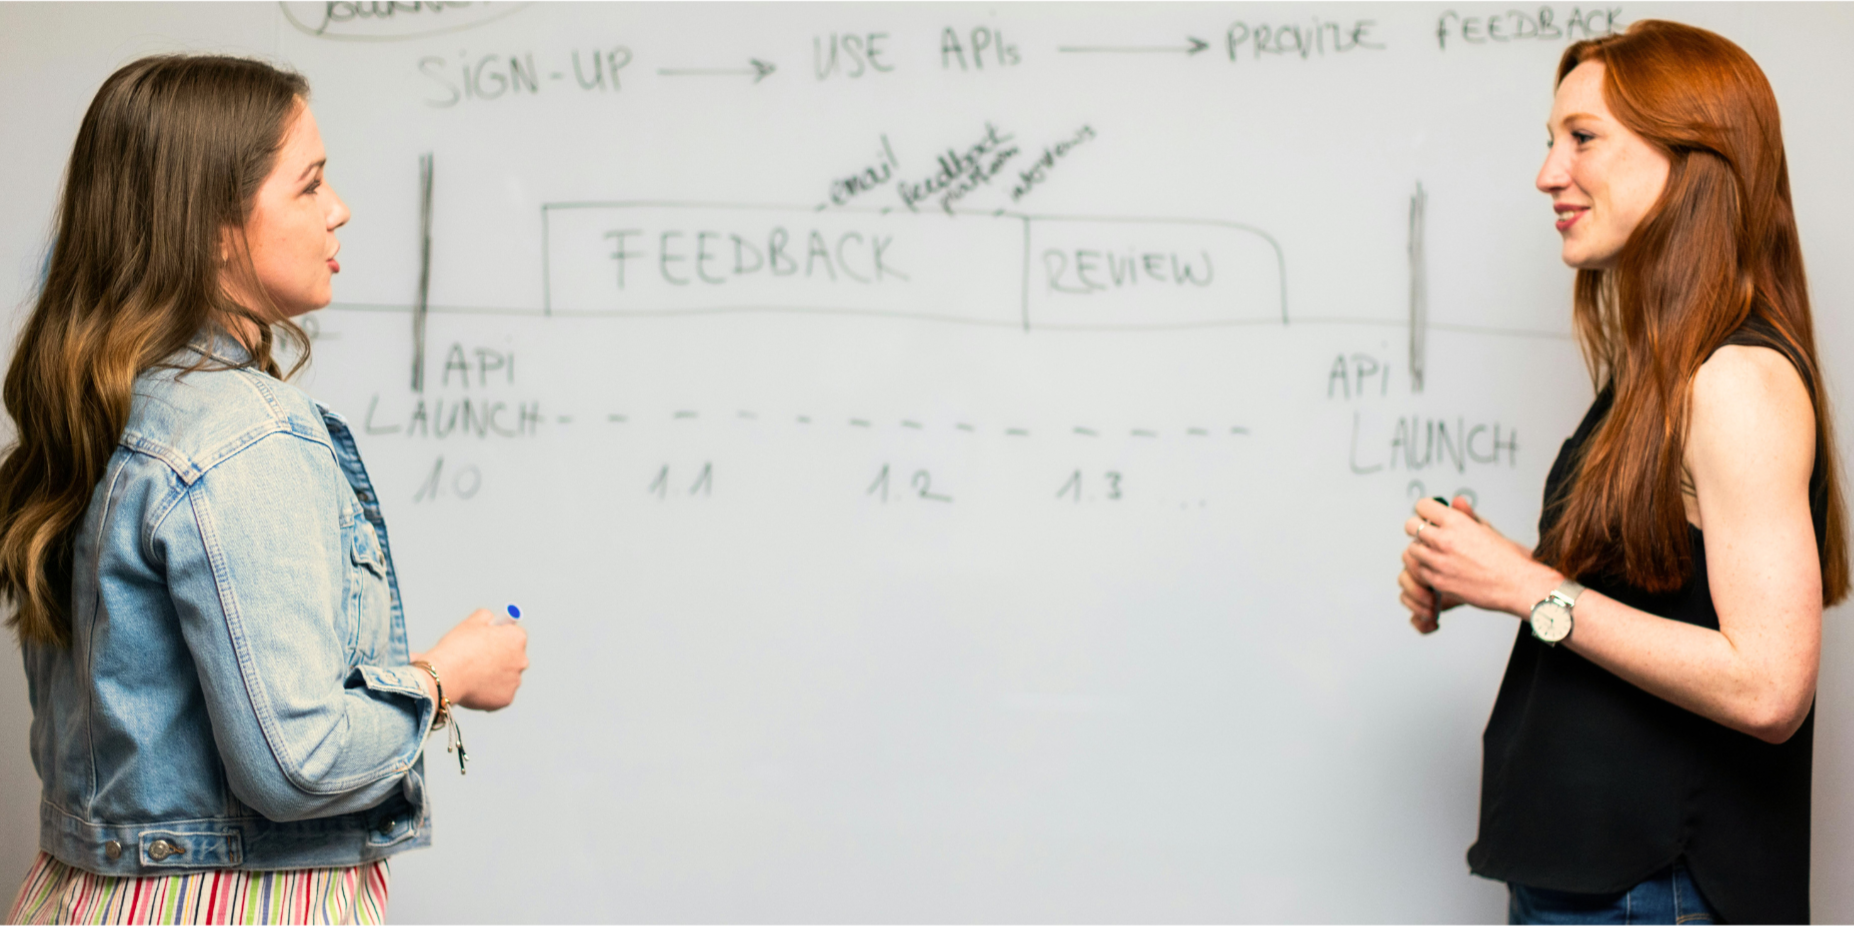 SIGN-UP → USE APIs → PROVIDE FEEDBACK
email
feedback
interviews
FEEDBACK
REVIEW
API
LAUNCH
1.0
1.1
1.2
1.3 ...
API
LAUNCH